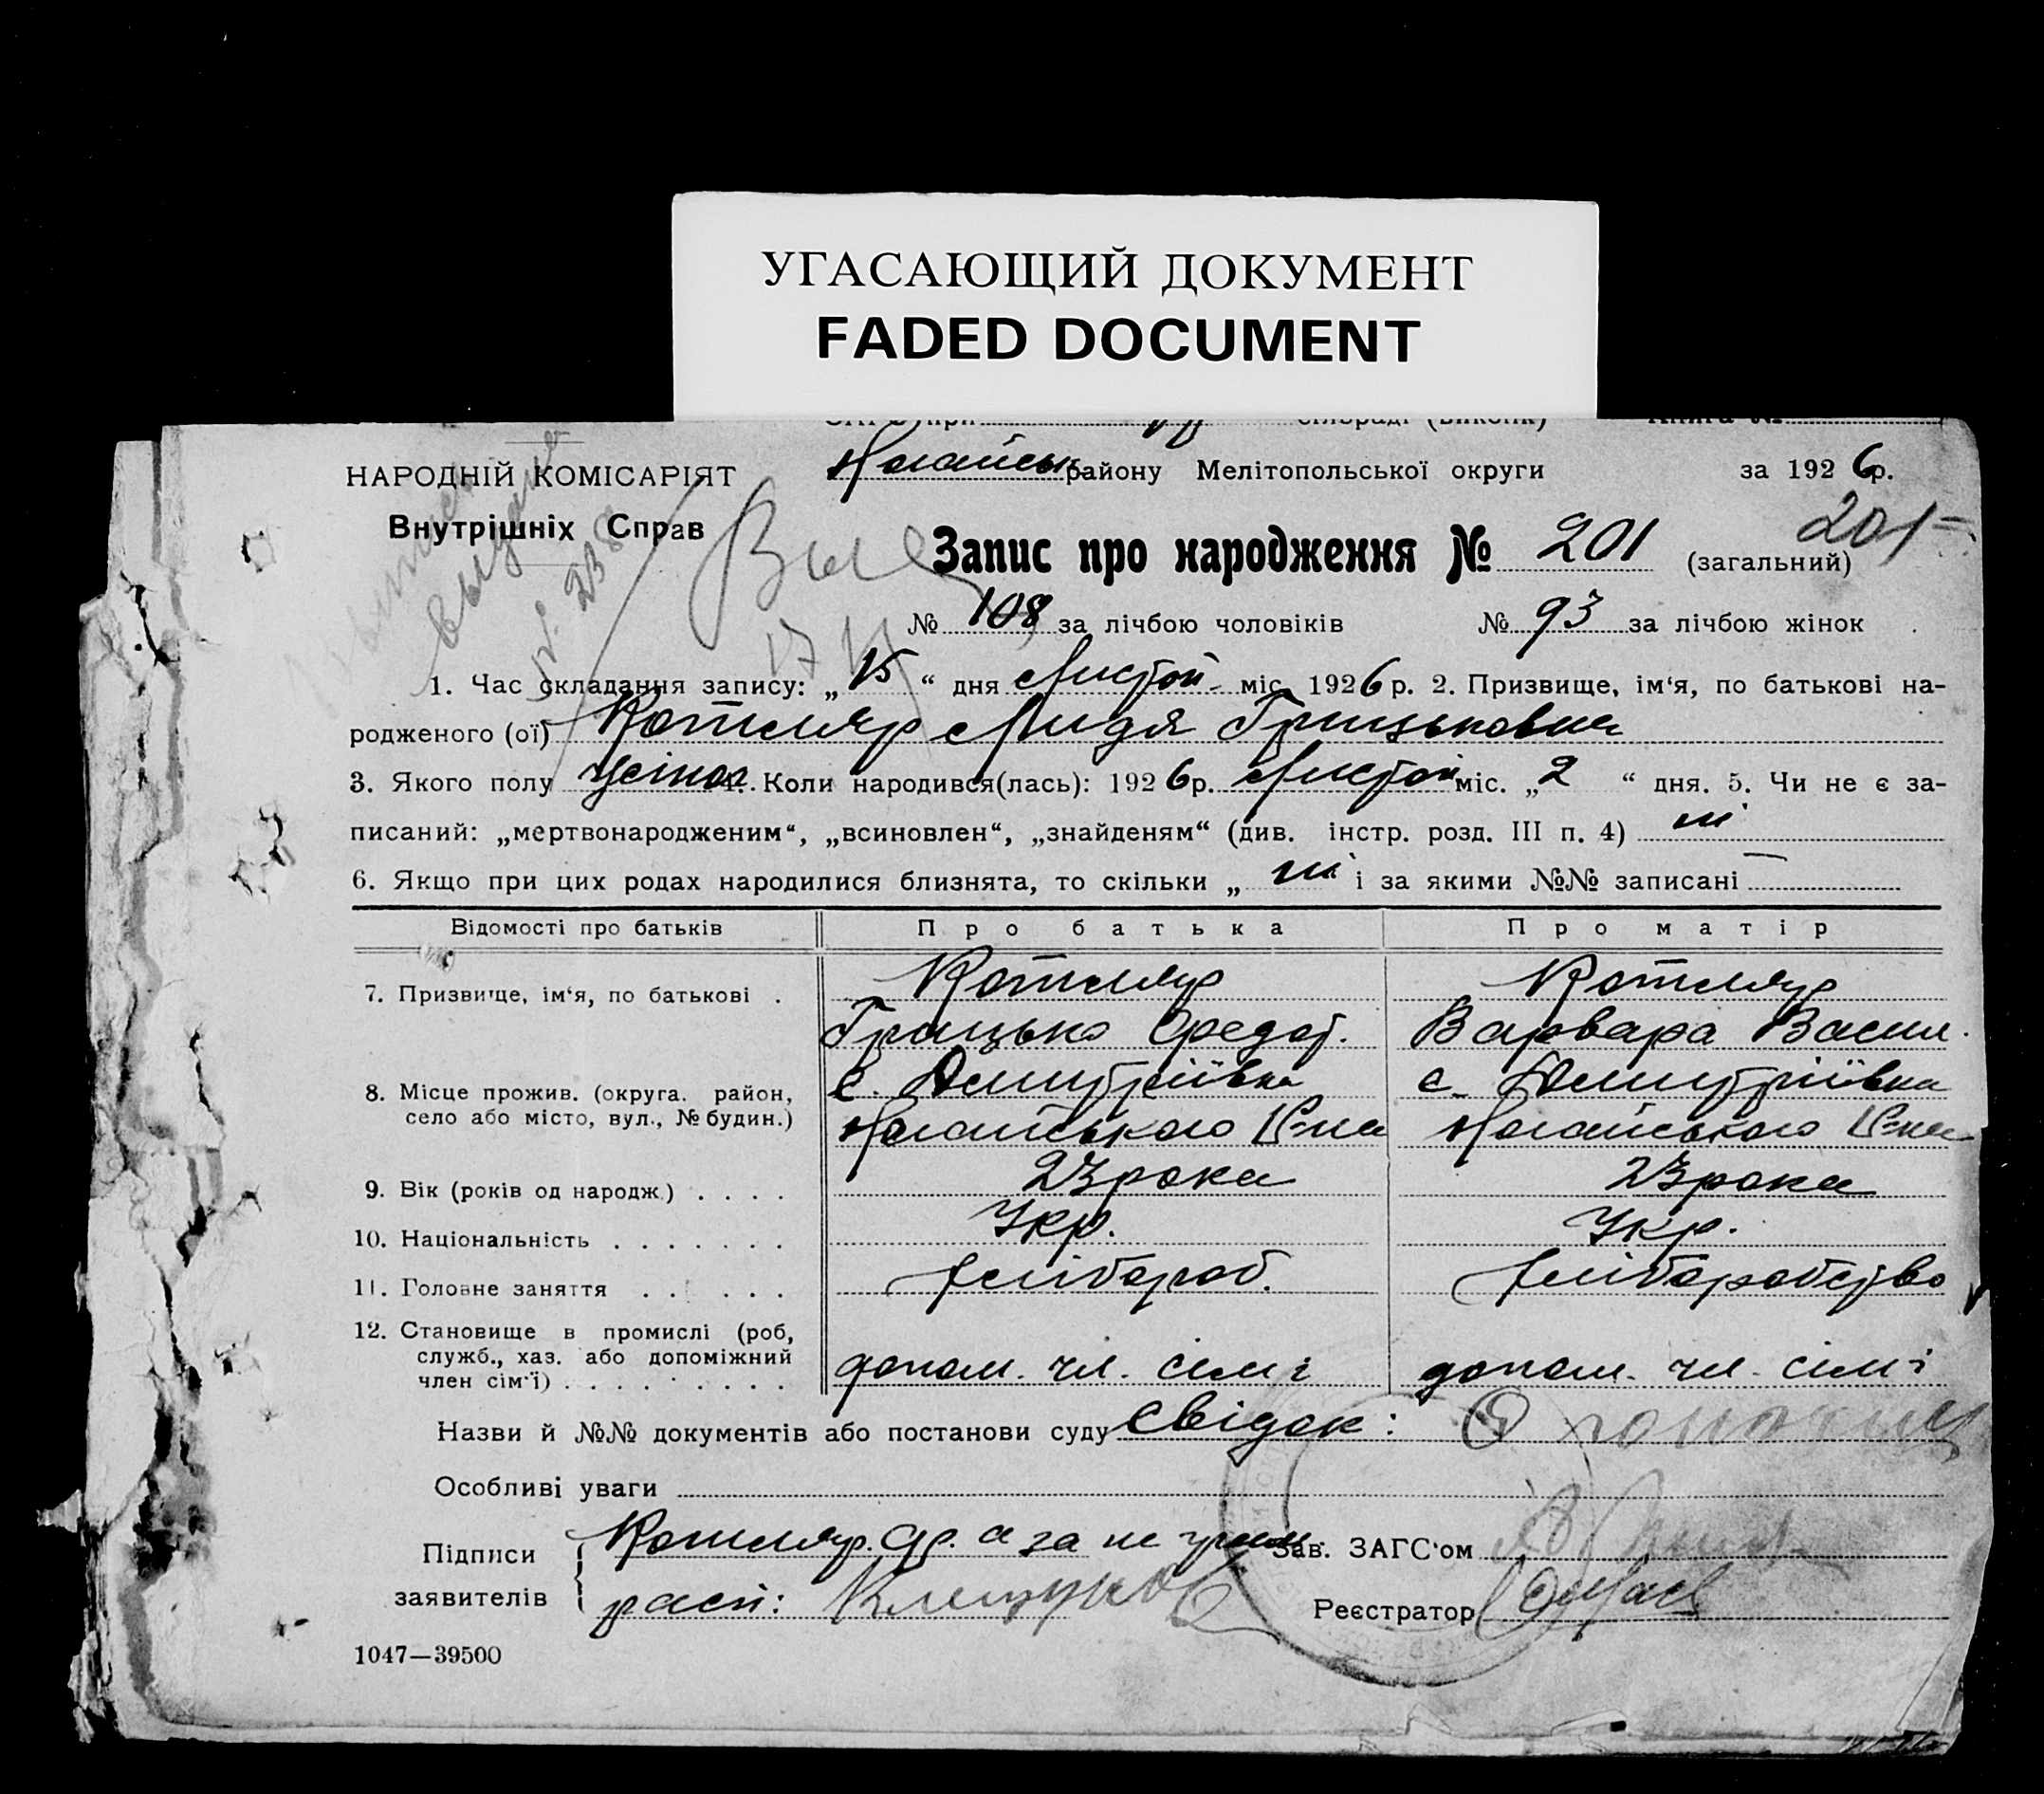 УГАСАЮЩИЙ ДОКУМЕНТ
FADED DOCUMENT
НАРОДНІЙ КОМІСАРІЯТ
Внутрішніх Справ
Ногайськ. району Мелітопольської округи за 1926 р.
Запис про народження № 201 (загальний)
201
№ 108 за лічбою чоловіків № 93 за лічбою жінок
1. Час складання запису: „15“ дня Листоп. міс. 1926 р. 2. Призвище, ім‘я, по батькові на-
родженого (ої) Котляр Лидя Грицьковна
3. Якого полу жіноч. 4. Коли народився(лась): 1926 р. Листоп міс. „2“ дня. 5. Чи не є за-
писаний: „мертвонародженим“, „всиновлен“, „знайденям“ (див. інстр. розд. III п. 4) ні
6. Якщо при цих родах народилися близнята, то скільки „ ні і за якими №№ записані —
Відомості про батьків Про батька Про матір
7. Призвище, ім‘я, по батькові . Котляр Котляр
Грицько Федот. Варвара Васил.
8. Місце прожив. (округа. район, село або місто, вул., № будин.) с. Дмитріївка с. Дмитріївка
Ногайського Р-на Ногайського Р-на
9. Вік (років од народж.) . . . . 23 рока 23 рока
10. Національність . . . . . . . Укр. Укр.
11. Головне заняття . . . . . . хлібороб. хліборобство
12. Становище в промислі (роб,
служб., хаз. або допоміжний
член сім‘ї) . . . . . . . . . допом. чл. сімї допом. чл. сімї
Назви й №№ документів або постанови суду Свідок:
Особливі уваги
Підписи заявителів Котляр. Гр. а за не грам. Зав. ЗАГС‘ом
расп: Реєстратор
1047—39500